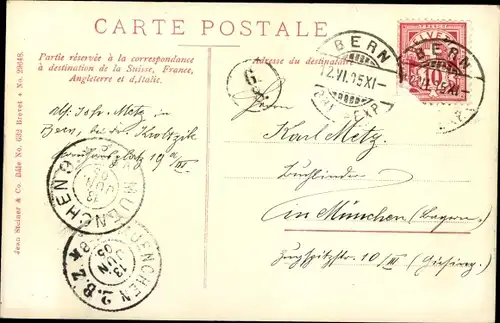 CARTE POSTALE
Partie réservée à la correspondance
à destination de la Suisse, France,
Angleterre et d'Italie.
Adresse du destinataire
BERN
12.VI.05 XI-
BERN
12.VI.05 XI-
10
G.
Herrn
Karl Metz.
Buchbinder
in München (Bayern)
Zugspitzstr. 10/III (Giesing).
Abs. Johs. Metz in
Bern, bei
10 a/III
MUENCHEN
13
JUN
05
MUENCHEN 2.B.Z. K
13
JUN
05
Jean Steiner & Co. Bâle No. 632 Brevet + No. 29048.